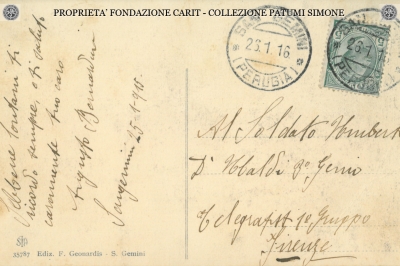 PROPRIETA' FONDAZIONE CARIT - COLLEZIONE PATUMI SIMONE
SAN GEMINI
26.1.16
(PERUGIA)
Sebbene lontani ti
ricordo sempre, e ti saluto
caramente tuo caro
Augusto Bernardini
Sangemini 25-1-916.
Al Soldato Umberto
D'Ubaldi 3° Genio
Telegrafisti 1° Gruppo
Firenze
35787 Ediz. F. Gennardis - S. Gemini